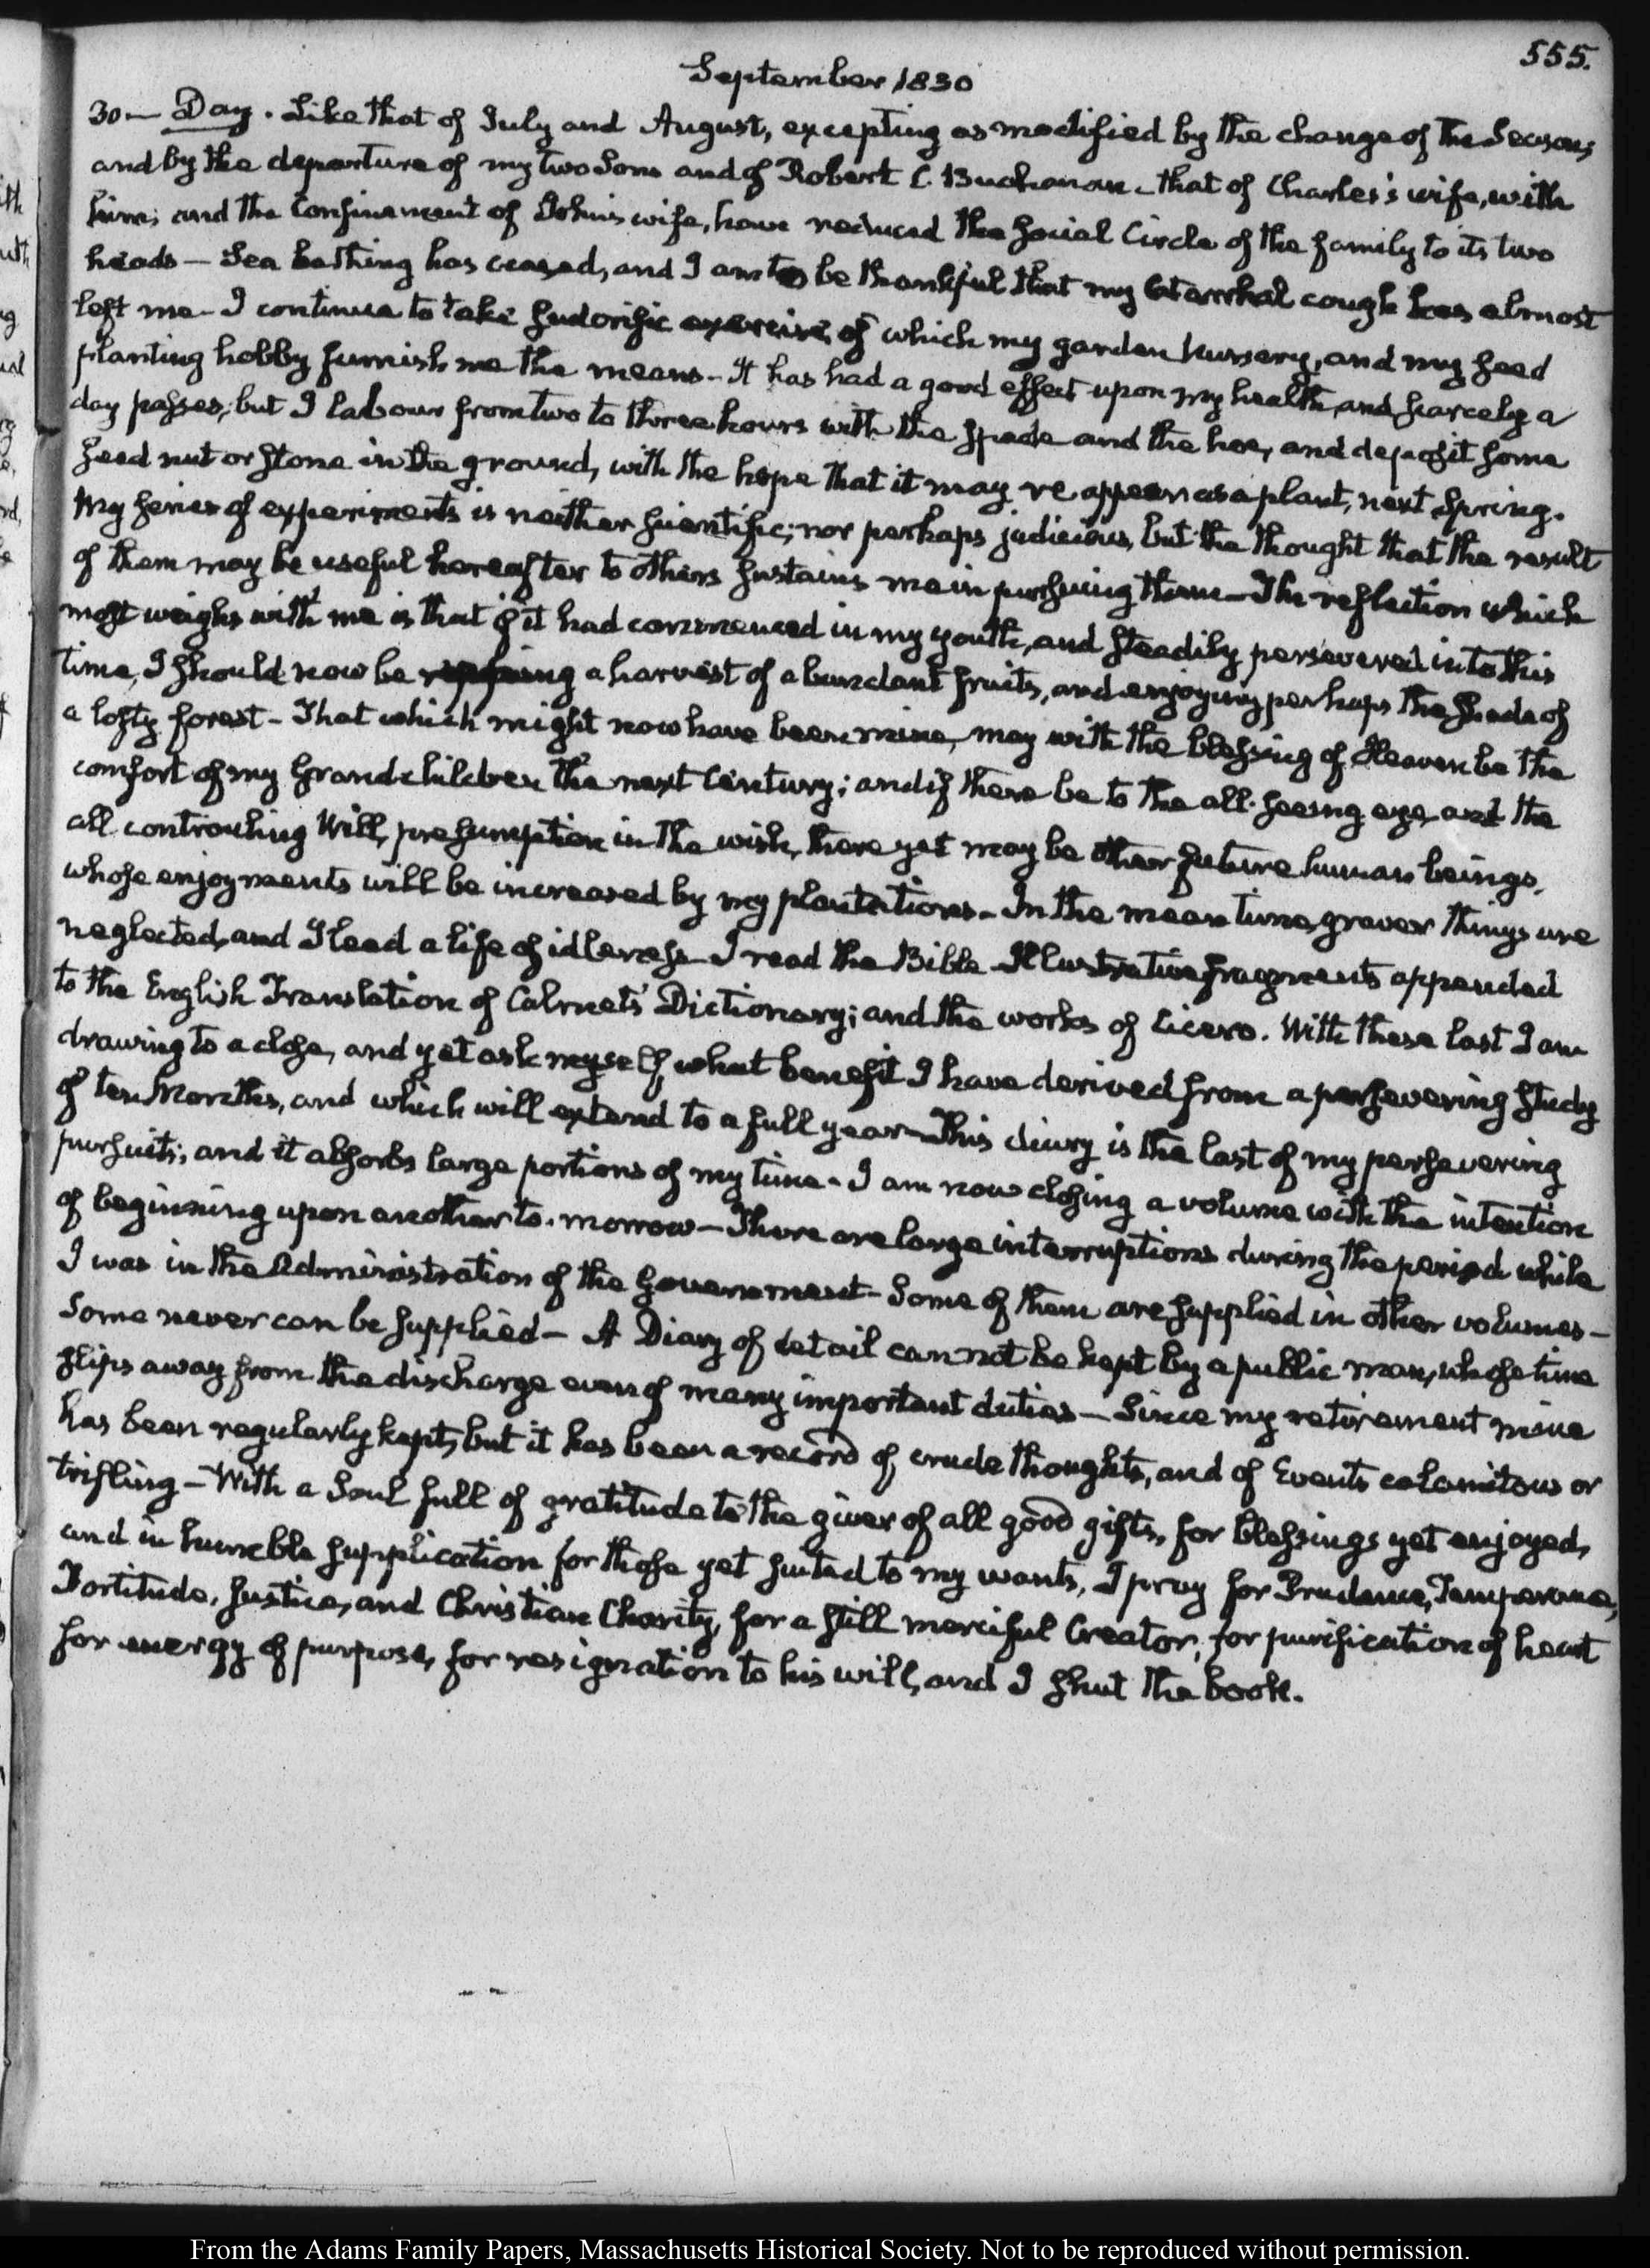 555.
September 1830
30— Day. Like that of July and August, excepting as modified by the change of the Seasons
and by the departure of my two Sons and of Robert C. Buchanan – that of Charles's wife, with
him; and the Confinement of John's wife, have reduced the social Circle of the family to its two
heads — Sea bathing has ceased, and I am to be thankful that my Catarrhal cough has almost
left me – I continue to take sudorific exercise, of which my garden Nursery, and my seed
planting hobby furnish me the means – It has had a good effect upon my health, and scarcely a
day passes, but I labour from two to three hours with the spade and the hoe, and deposit some
seed nut or stone in the ground, with the hope that it may re appear as a plant, next Spring.
My series of experiments is neither scientific, nor perhaps judicious, but the thought that the result
of them may be useful hereafter to others sustains me in pursuing them — The reflection which
most weighs with me is that if it had commenced in my youth, and steadily persevered in to this
time, I should now be a harvest of abundant fruits, and enjoying perhaps the shade of
a lofty forest – That which might now have been mine, may with the blessing of Heaven be the
comfort of my Grandchildren the next Century; and if there be to the all-seeing eye, and the
all controuling Will, presumption in the wish, there yet may be other future human beings,
whose enjoyments will be increased by my plantations – In the mean time, graver things are
neglected, and I lead a life of idleness – I read the Bible – Illustrative fragments appended
to the English Translation of Calmet's Dictionary; and the works of Cicero. With these last I am
drawing to a close, and yet ask myself, what benefit I have derived from a persevering study
of ten Months, and which will extend to a full year — This diary is the last of my persevering
pursuits; and it absorbs large portions of my time – I am now closing a volume with the intention
of beginning upon another to-morrow — There are large interruptions during the period while
I was in the Administration of the Government – Some of them are supplied in other volumes –
Some never can be supplied – A Diary of detail cannot be kept by a public man, whose time
slips away from the discharge even of many important duties — Since my retirement mine
has been regularly kept, but it has been a record of crude thoughts, and of Events calamitous or
trifling – With a Soul full of gratitude to the giver of all good gifts, for blessings yet enjoyed,
and in humble supplication for those yet suited to my wants, I pray for Prudence, Temperance,
Fortitude, Justice, and Christian Charity, for a still merciful Creator, for purification of heart
for energy of purpose, for resignation to his will, and I shut the book.
From the Adams Family Papers, Massachusetts Historical Society. Not to be reproduced without permission.